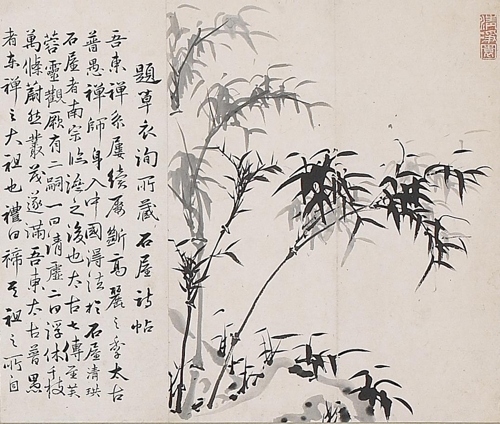 題草衣洵所藏石屋詩帖
吾東禪系屢續屢斷高麗之季太古
普愚禪師身入中國得法於石屋清珙
石屋者南宗臨濟之後也太古七傳至芙
蓉靈觀厥有二嗣一曰清虛二曰浮休千枝
萬條蔚然叢茂遂滿吾東太古普愚
者東禪之太祖也禮曰禘其祖之所自